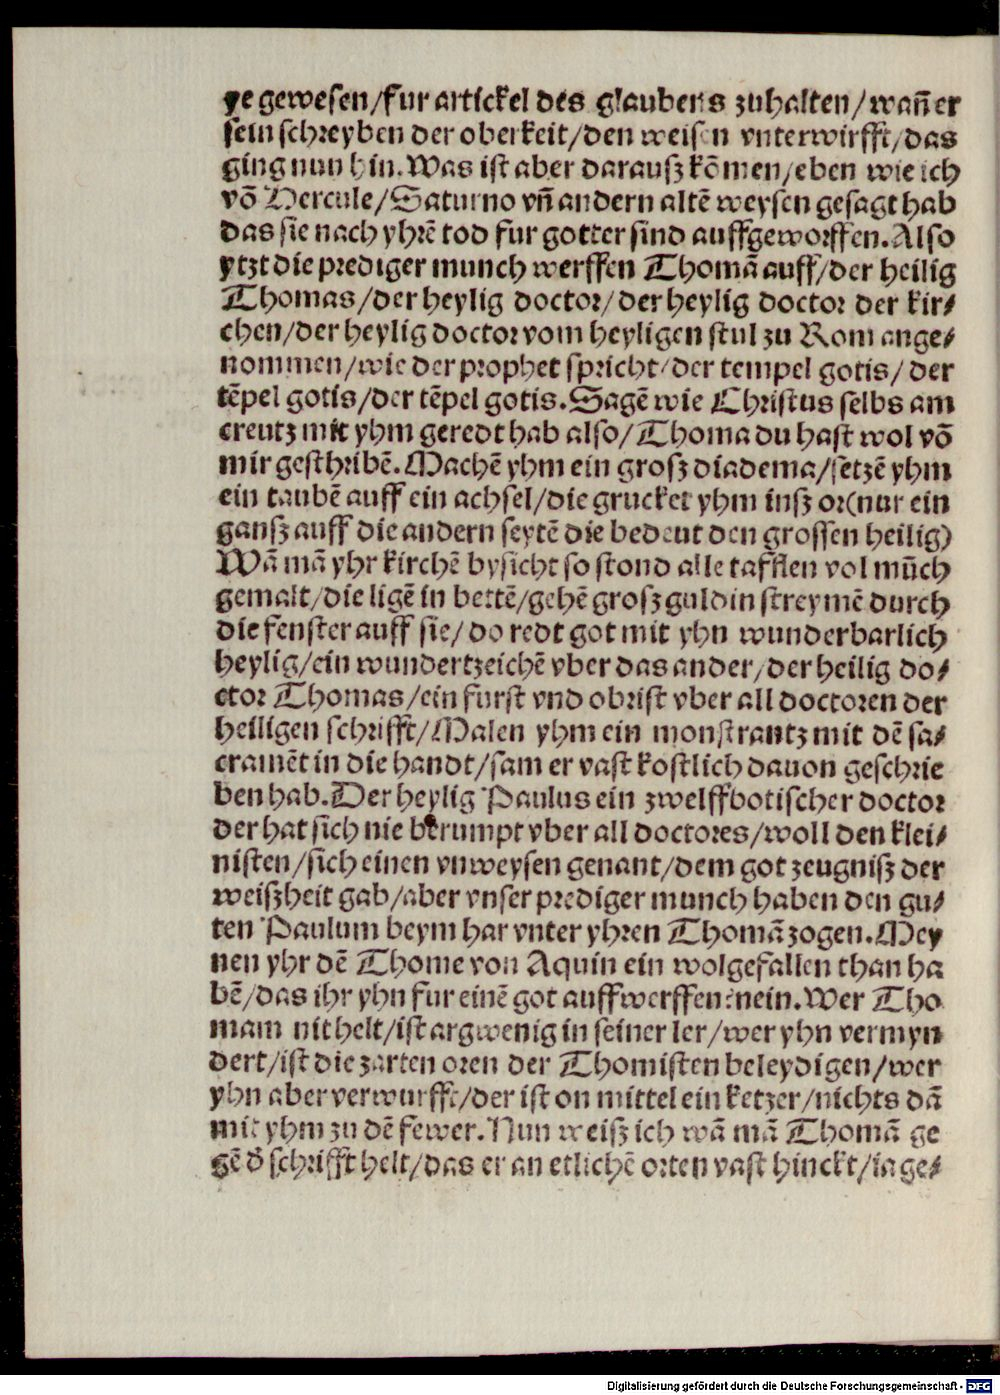 ye gewesen/fur artickel des glaubens zuhalten/wañ er
sein schreyben der oberkeit/den weisen vnterwirfft/das
ging nun hin. Was ist aber darausz kõmen/eben wie ich
võ Hercule/Saturno vñ andern altẽ weysen gesagt hab
das sie nach yhrẽ tod fur gotter sind auffgeworffen. Also
ytzt die prediger munch werffen Thomã auff/der heilig
Thomas/der heylig doctor/der heylig doctor der kir⸗
chen/der heylig doctor vom heyligen stul zu Rom ange⸗
nommen/wie der prophet spricht/der tempel gotis/der
tẽpel gotis/der tẽpel gotis. Sagẽ wie Christus selbs am
creutz mit yhm geredt hab also/Thoma du hast wol võ
mir geschribẽ. Machẽ yhm ein grosz diadema/setzẽ yhm
ein taubẽ auff ein achsel/die grucket yhm insz or(nur ein
gansz auff die andern seytẽ die bedeut den grossen heilig)
Wã mã yhr kirchẽ bysicht so stond alle tafflen vol mũch
gemalt/die ligẽ in bettẽ/gehẽ grosz guldin streymẽ durch
die fenster auff sie/do redt got mit yhn wunderbarlich
heylig/ein wundertzeichẽ vber das ander/der heilig do⸗
ctor Thomas/ein furst vnd obrist vber all doctoren der
heiligen schrifft/Malen yhm ein monstrantz mit dẽ sa⸗
cramẽt in die handt/sam er vast kostlich dauon geschrie
ben hab. Der heylig Paulus ein zwelffbotischer doctor
der hat sich nie berumpt vber all doctores/woll den klei⸗
nisten/sich einen vnweysen genant/dem got zeugnisz der
weiszheit gab/aber vnser prediger munch haben den gu⸗
ten Paulum beym har vnter yhren Thomã zogen. Mey
nen yhr dẽ Thome von Aquin ein wolgefallen than ha
bẽ/das ihr yhn fur einẽ got auffwerffen:nein. Wer Tho
mam nit helt/ist argwenig in seiner ler/wer yhn vermyn
dert/ist die zarten oren der Thomisten beleydigen/wer
yhn aber verwurfft/der ist on mittel ein ketzer/nichts dã
mit yhm zu dẽ fewer. Nun weisz ich wã mã Thomã ge
gẽ d̕ schrifft helt/das er an etlichẽ orten vast hinckt/ia ge⸗
Digitalisierung gefördert durch die Deutsche Forschungsgemeinschaft - DFG